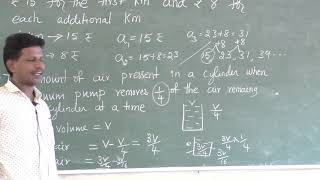 ₹ 15 for the first km and ₹ 8 for
each additional km
→ 15 ₹ a₁ = 15 ₹ a₃ = 23+8 = 31
= 8 ₹ a₂ = 15+8 = 23 +8 +8
15, 23, 31, 39 ....
amount of air present in a cylinder when
pump removes 1/4 of the air remaining
cylinder at a time V
volume = V V/4
air = V - V/4 = 3V/4 3V/4 3V/4 × 1/4
air = 3V/4 - 3V/16 3V/16